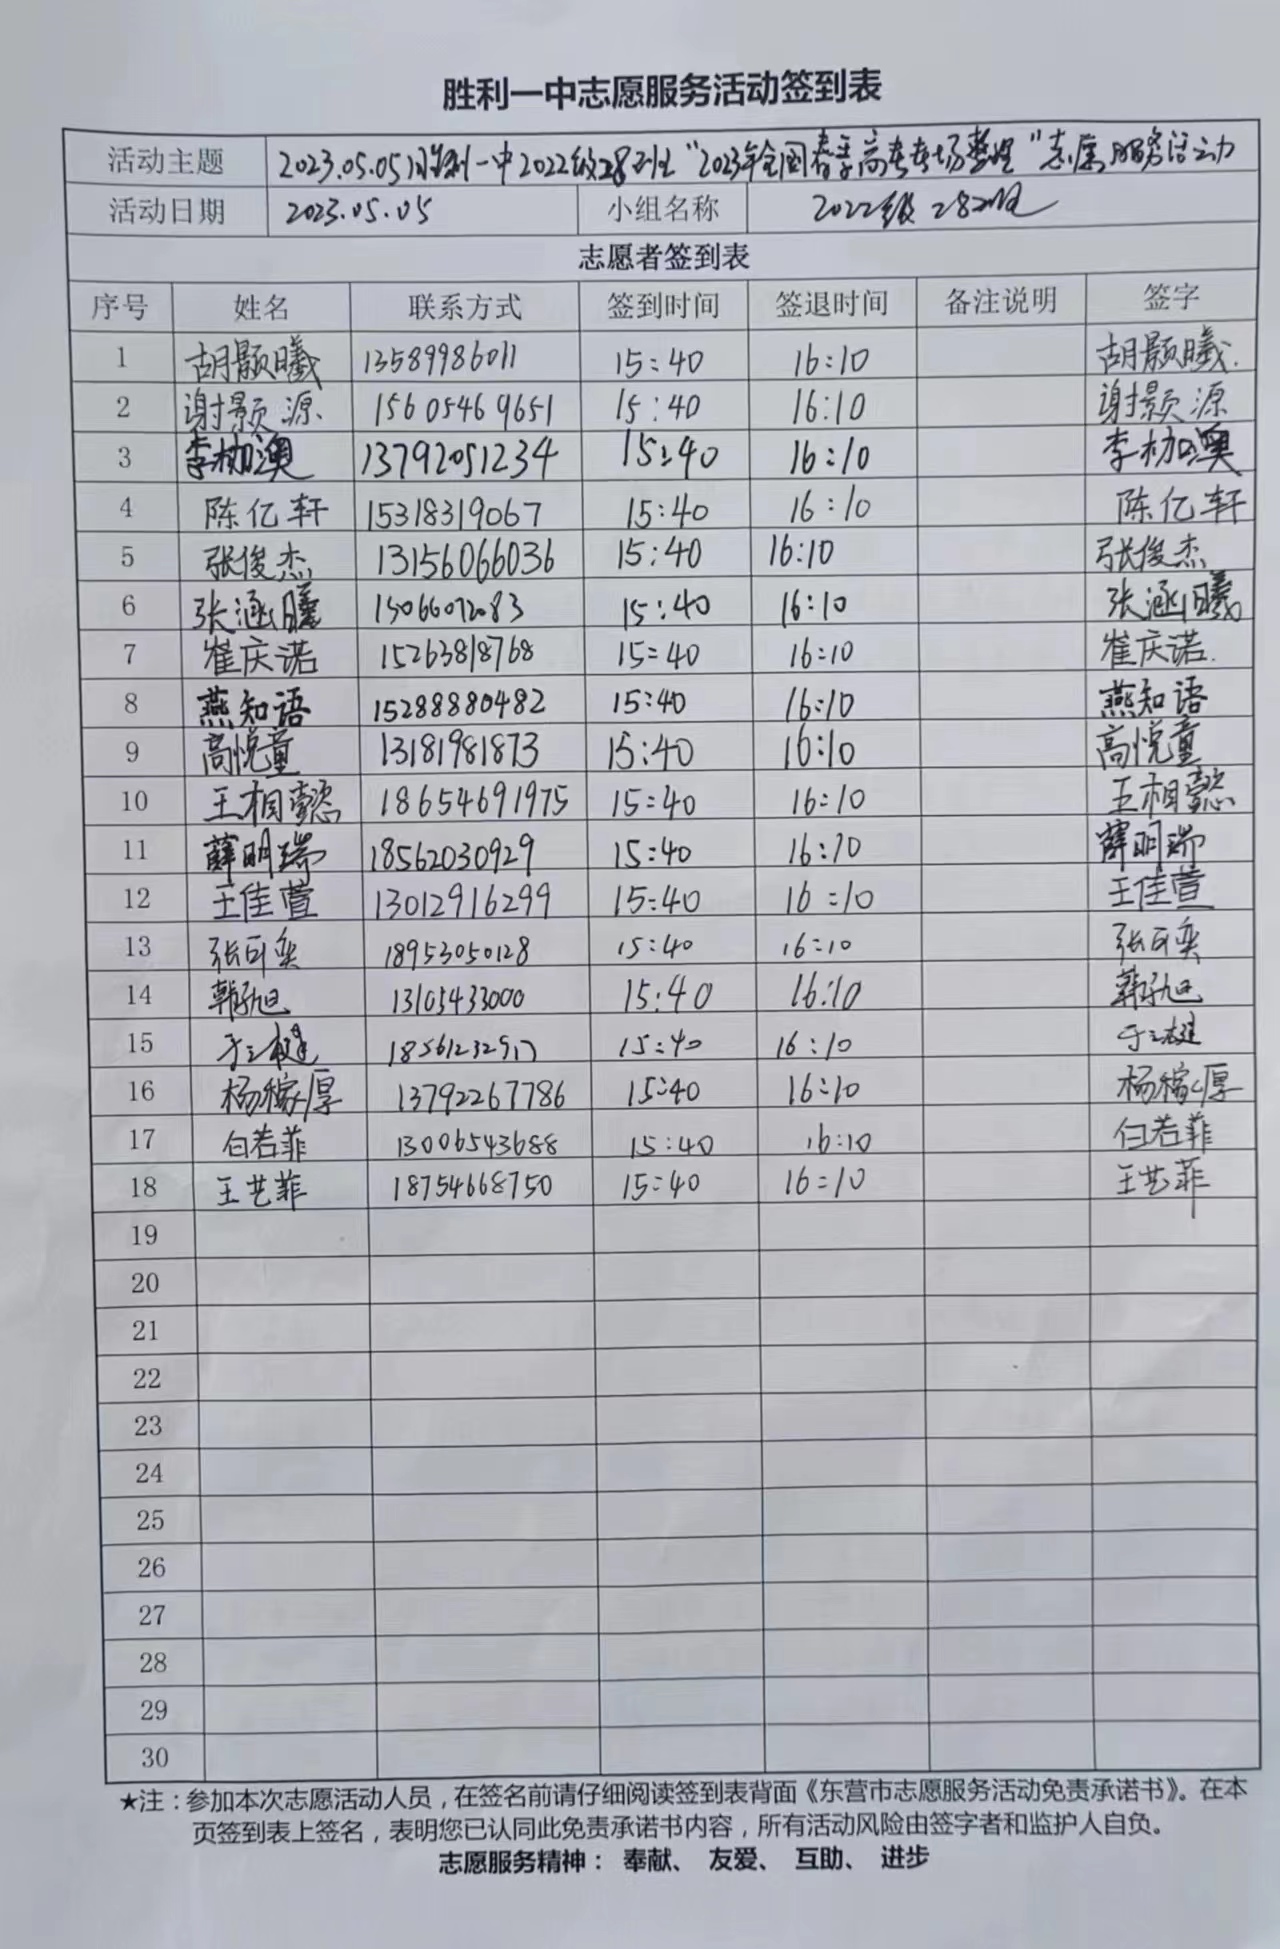 胜利一中志愿服务活动签到表
活动主题 2023.05.05 胜利一中2022级28班"2023年全国春季高考考场整理"志愿服务活动
活动日期 2023.05.05 小组名称 2022级28班
志愿者签到表
序号 姓名 联系方式 签到时间 签退时间 备注说明 签字
1 胡颢曦 13589986011 15:40 16:10 胡颢曦.
2 谢颢源. 15605469651 15:40 16:10 谢颢源
3 李澳 13792051234 15:40 16:10 李澳
4 陈亿轩 15318319067 15:40 16:10 陈亿轩
5 张俊杰 13156066036 15:40 16:10 张俊杰
6 张涵曦 15066072083 15:40 16:10 张涵曦
7 崔庆诺 15263818768 15:40 16:10 崔庆诺.
8 燕知语 15288880482 15:40 16:10 燕知语
9 高悦童 13181981873 15:40 16:10 高悦童
10 王相懿 18654691975 15:40 16:10 王相懿
11 薛明瑞 18562030929 15:40 16:10 薛明瑞
12 王佳萱 13012916299 15:40 16:10 王佳萱
13 张可奕 18953050128 15:40 16:10 张可奕
14 韩旭 13105433000 15:40 16:10 韩旭
15 于 15:40 16:10 于
16 杨稼厚 13792267786 15:40 16:10 杨稼厚
17 白若菲 13006543688 15:40 16:10 白若菲
18 王艺菲 18754668750 15:40 16:10 王艺菲
19
20
21
22
23
24
25
26
27
28
29
30
★注：参加本次志愿活动人员，在签名前请仔细阅读签到表背面《东营市志愿服务活动免责承诺书》。在本
页签到表上签名，表明您已认同此免责承诺书内容，所有活动风险由签字者和监护人自负。
志愿服务精神： 奉献、 友爱、 互助、 进步